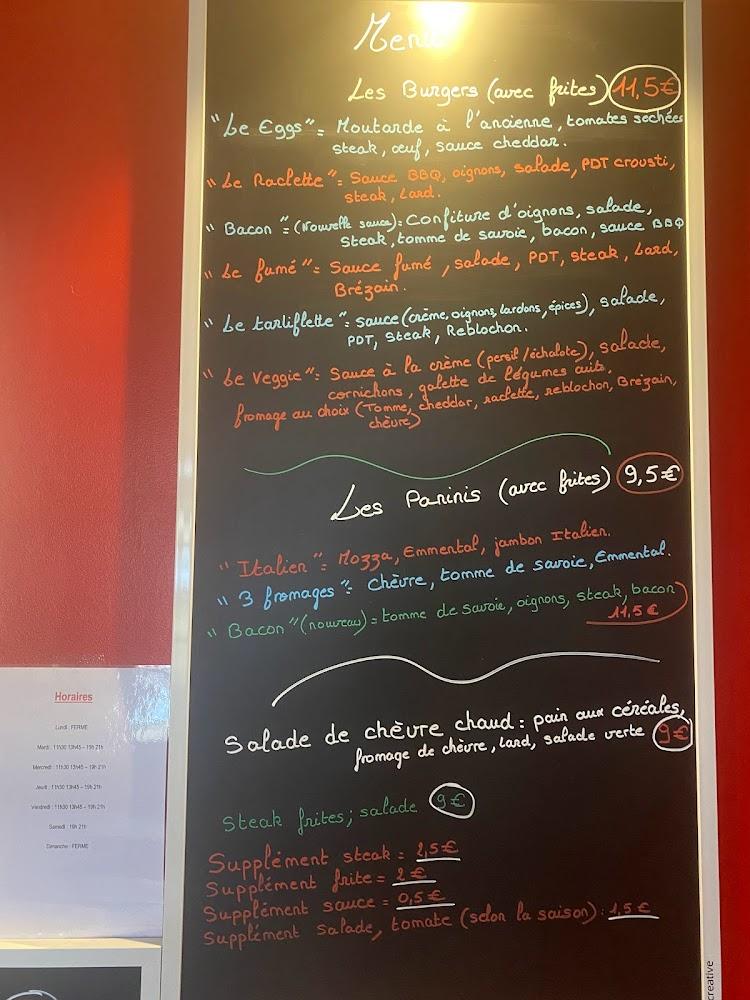 Menu
Les Burgers (avec frites) 11,5€
"Le Eggs" = Moutarde à l'ancienne, tomates sechées
steak, œuf, sauce cheddar.
"Le Raclette" = Sauce BBQ, oignons, salade, PDT crousti,
steak, Lard.
"Bacon" = (Nouvelle sauce) = Confiture d'oignons, salade,
steak, tomme de savoie, bacon, sauce BBQ
"Le fumé" = Sauce fumé, salade, PDT, steak, Lard,
Brézain.
"Le tartiflette" = sauce (crème, oignons, lardons, épices), salade,
PDT, steak, Reblochon.
"Le Veggie" = Sauce à la crème (persil/échalote), salade,
cornichons, galette de légumes cuits.
fromage au choix (Tomme, cheddar, raclette, reblochon, Brezain,
chèvre)
Les Paninis (avec frites) 9,5€
"Italien" = Mozza, Emmental, jambon Italien.
"3 fromages" = Chèvre, tomme de savoie, Emmental.
"Bacon" (nouveau) = tomme de savoie, oignons, steak, bacon
11,5€
Salade de chèvre chaud : pain aux céréales,
fromage de chèvre, lard, salade verte 9€
Steak frites; salade 9€
Supplément steak = 2,5€
Supplément frite = 2€
Supplément sauce = 0,5€
Supplément salade, tomate (selon la saison) : 1,5€
Horaires
Lundi : FERME
Mardi : 11h30 13h45 – 19h 21h
Mercredi : 11h30 13h45 – 19h 21h
Jeudi : 11h30 13h45 – 19h 21h
Vendredi : 11h30 13h45 – 19h 21h
Samedi : 19h 21h
Dimanche : FERME
creative